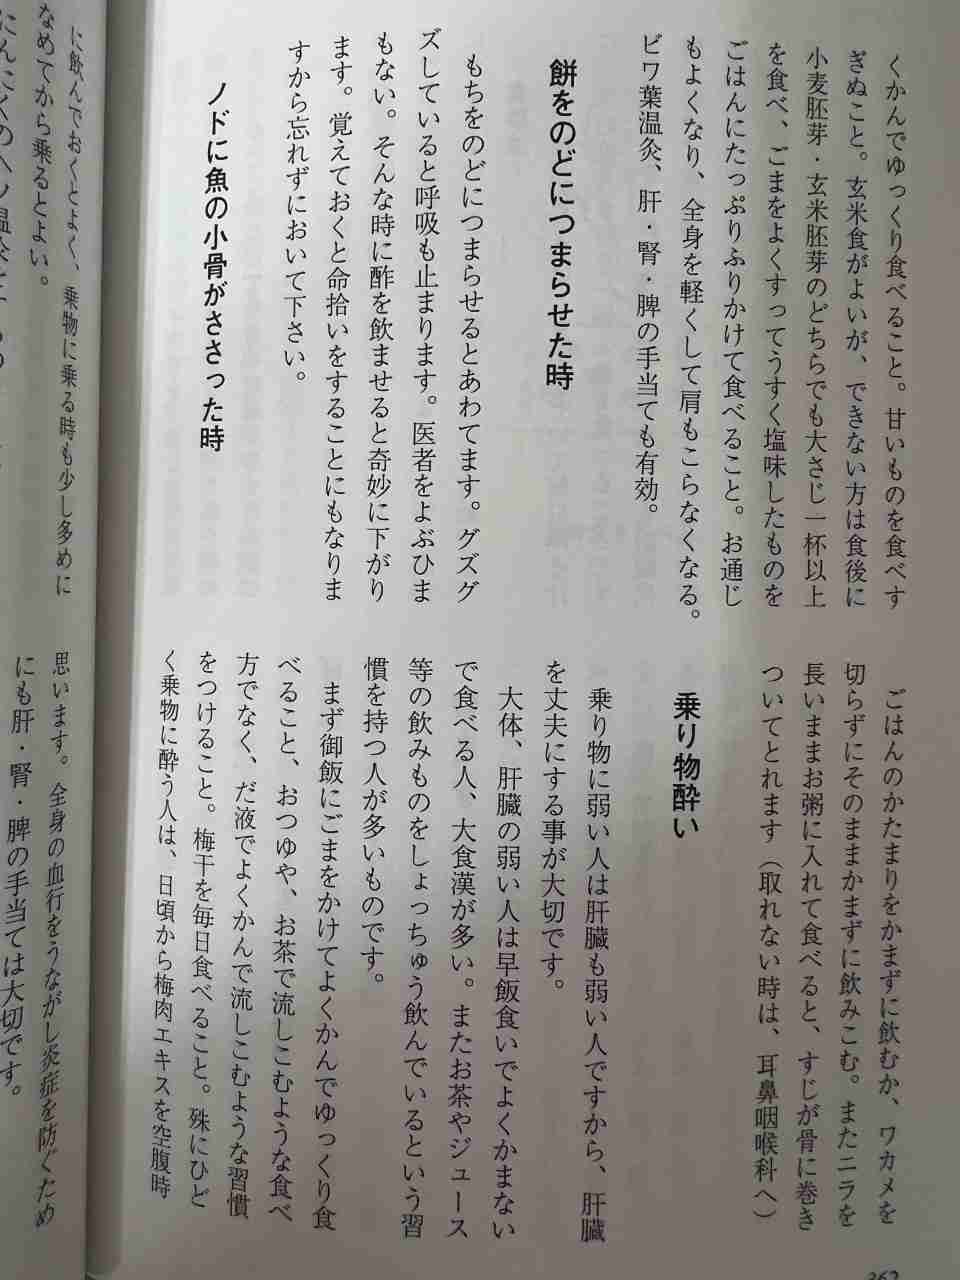 くかんでゆっくり食べること。甘いものを食べす
ぎぬこと。玄米食がよいが、できない方は食後に
小麦胚芽・玄米胚芽のどちらでも大さじ一杯以上
を食べ、ごまをよくすってうすく塩味したものを
ごはんにたっぷりふりかけて食べること。お通じ
もよくなり、全身を軽くして肩もこらなくなる。
ビワ葉温灸、肝・腎・脾の手当ても有効。
餅をのどにつまらせた時
もちをのどにつまらせるとあわてます。グズグ
ズしていると呼吸も止まります。医者をよぶひま
もない。そんな時に酢を飲ませると奇妙に下がり
ます。覚えておくと命拾いをすることにもなりま
すから忘れずにおいて下さい。
ノドに魚の小骨がささった時
ごはんのかたまりをかまずに飲むか、ワカメを
切らずにそのままかまずに飲みこむ。またニラを
長いままお粥に入れて食べると、すじが骨に巻き
ついてとれます（取れない時は、耳鼻咽喉科へ）
乗り物酔い
乗り物に弱い人は肝臓も弱い人ですから、肝臓
を丈夫にする事が大切です。
大体、肝臓の弱い人は早飯食いでよくかまない
で食べる人、大食漢が多い。またお茶やジュース
等の飲みものをしょっちゅう飲んでいるという習
慣を持つ人が多いものです。
まず御飯にごまをかけてよくかんでゆっくり食
べること、おつゆや、お茶で流しこむような食べ
方でなく、だ液でよくかんで流しこむような習慣
をつけること。梅干を毎日食べること。殊にひど
く乗物に酔う人は、日頃から梅肉エキスを空腹時
に飲んでおくとよく、乗物に乗る時も少し多めに
なめてから乗るとよい。
思います。全身の血行をうながし炎症を防ぐため
にも肝・腎・脾の手当ては大切です。